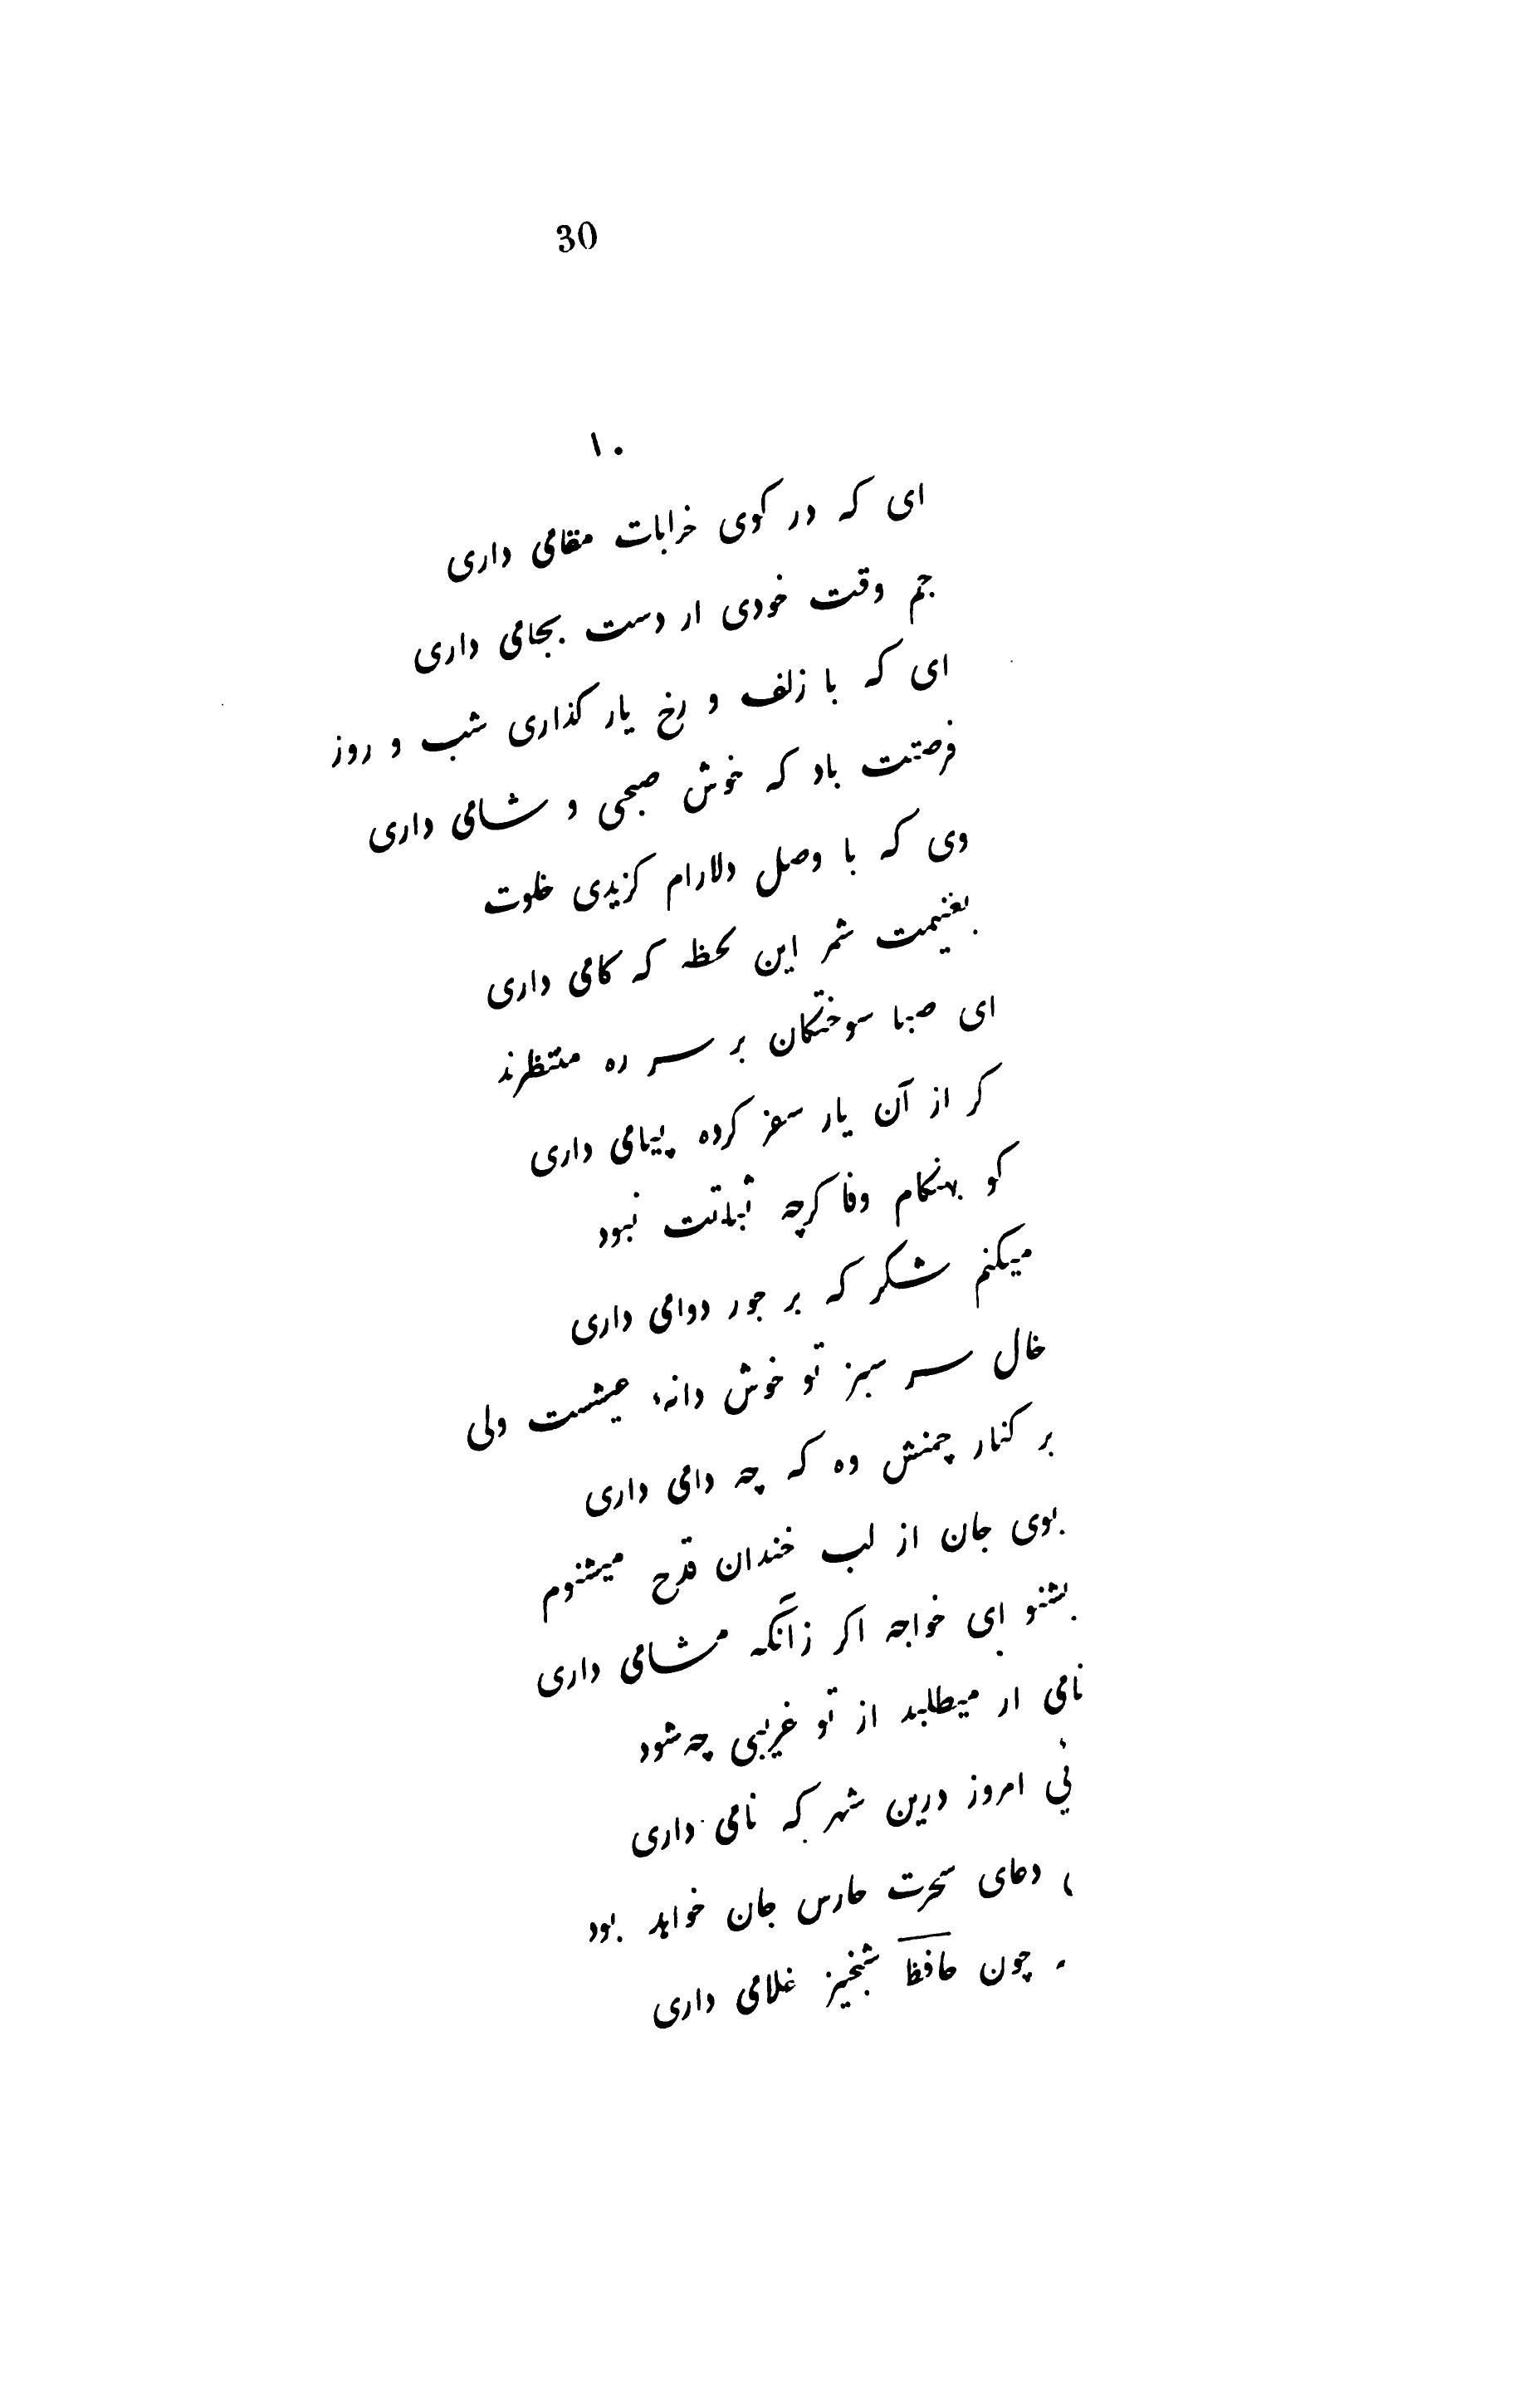 30
۱۰
ای که در کوی خرابات مقامی داری
جم وقت خودی ار دست بجامی داری
ای که با زلف و رخ یار کذاری شب و روز
فرصتت باد که خوش صبحی و شامی داری
وی که با وصل دلارام کزیدی خلوت
بغنیمت شمر این لحظه که کامی داری
ای صبا سوختکان بر سر ره منتظرند
کر از آن یار سفر کرده پیامی داری
کو بهنکام وفا کرچه ثباتت نبود
میکنم شکر که بر جور دوامی داری
خال سر سبز تو خوش دانهٔ عیشست ولی
بر کنار چمنش وه که چه دامی داری
بوی جان از لب خندان قدح میشنوم
بشنو ای خواجه اکر زآنکه مشامی داری
نامی ار میطلبد از تو غریبی چه شود
امروز درین شهر که نامی داری
دعای سحرت حارس جان خواهد بود
چون حافظ شبخیز غلامی داری